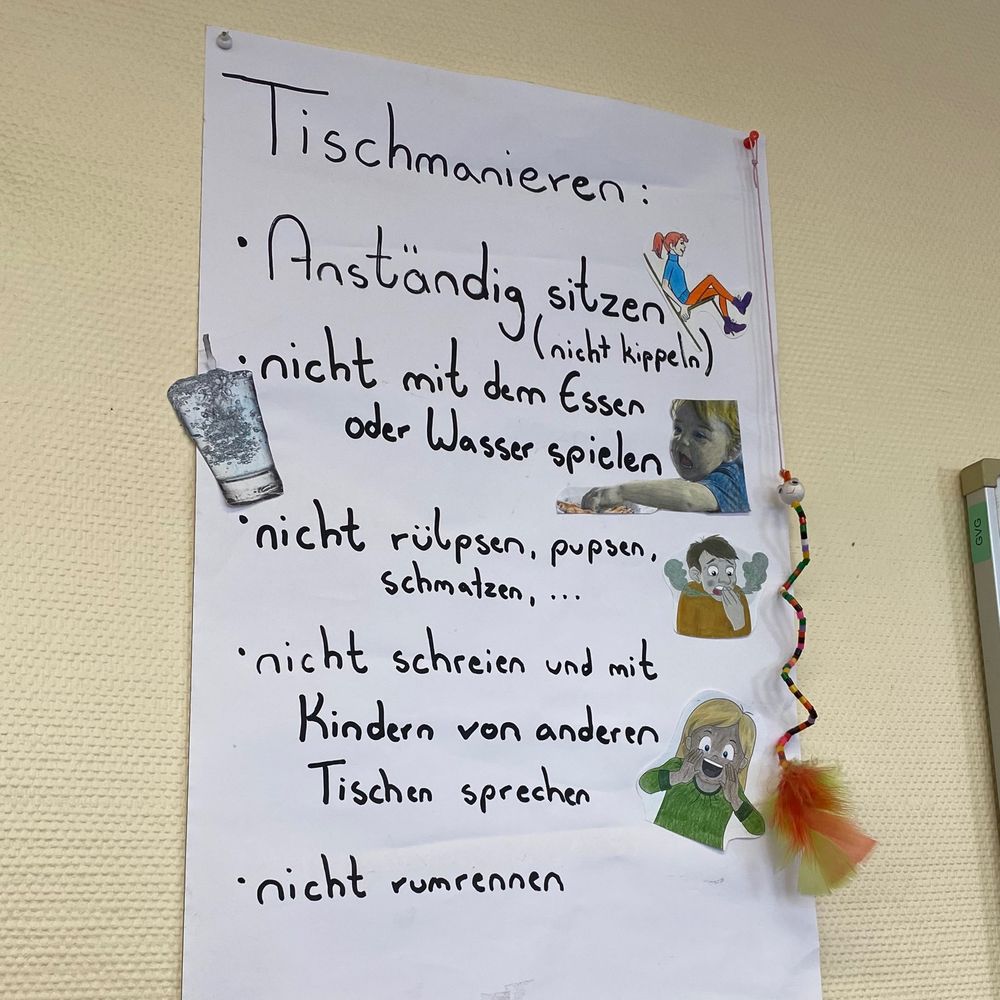 Tischmanieren:
· Anständig sitzen
(nicht kippeln)
· nicht mit dem Essen
oder Wasser spielen
· nicht rülpsen, pupsen,
schmatzen, ...
· nicht schreien und mit
Kindern von anderen
Tischen sprechen
· nicht rumrennen
GVG